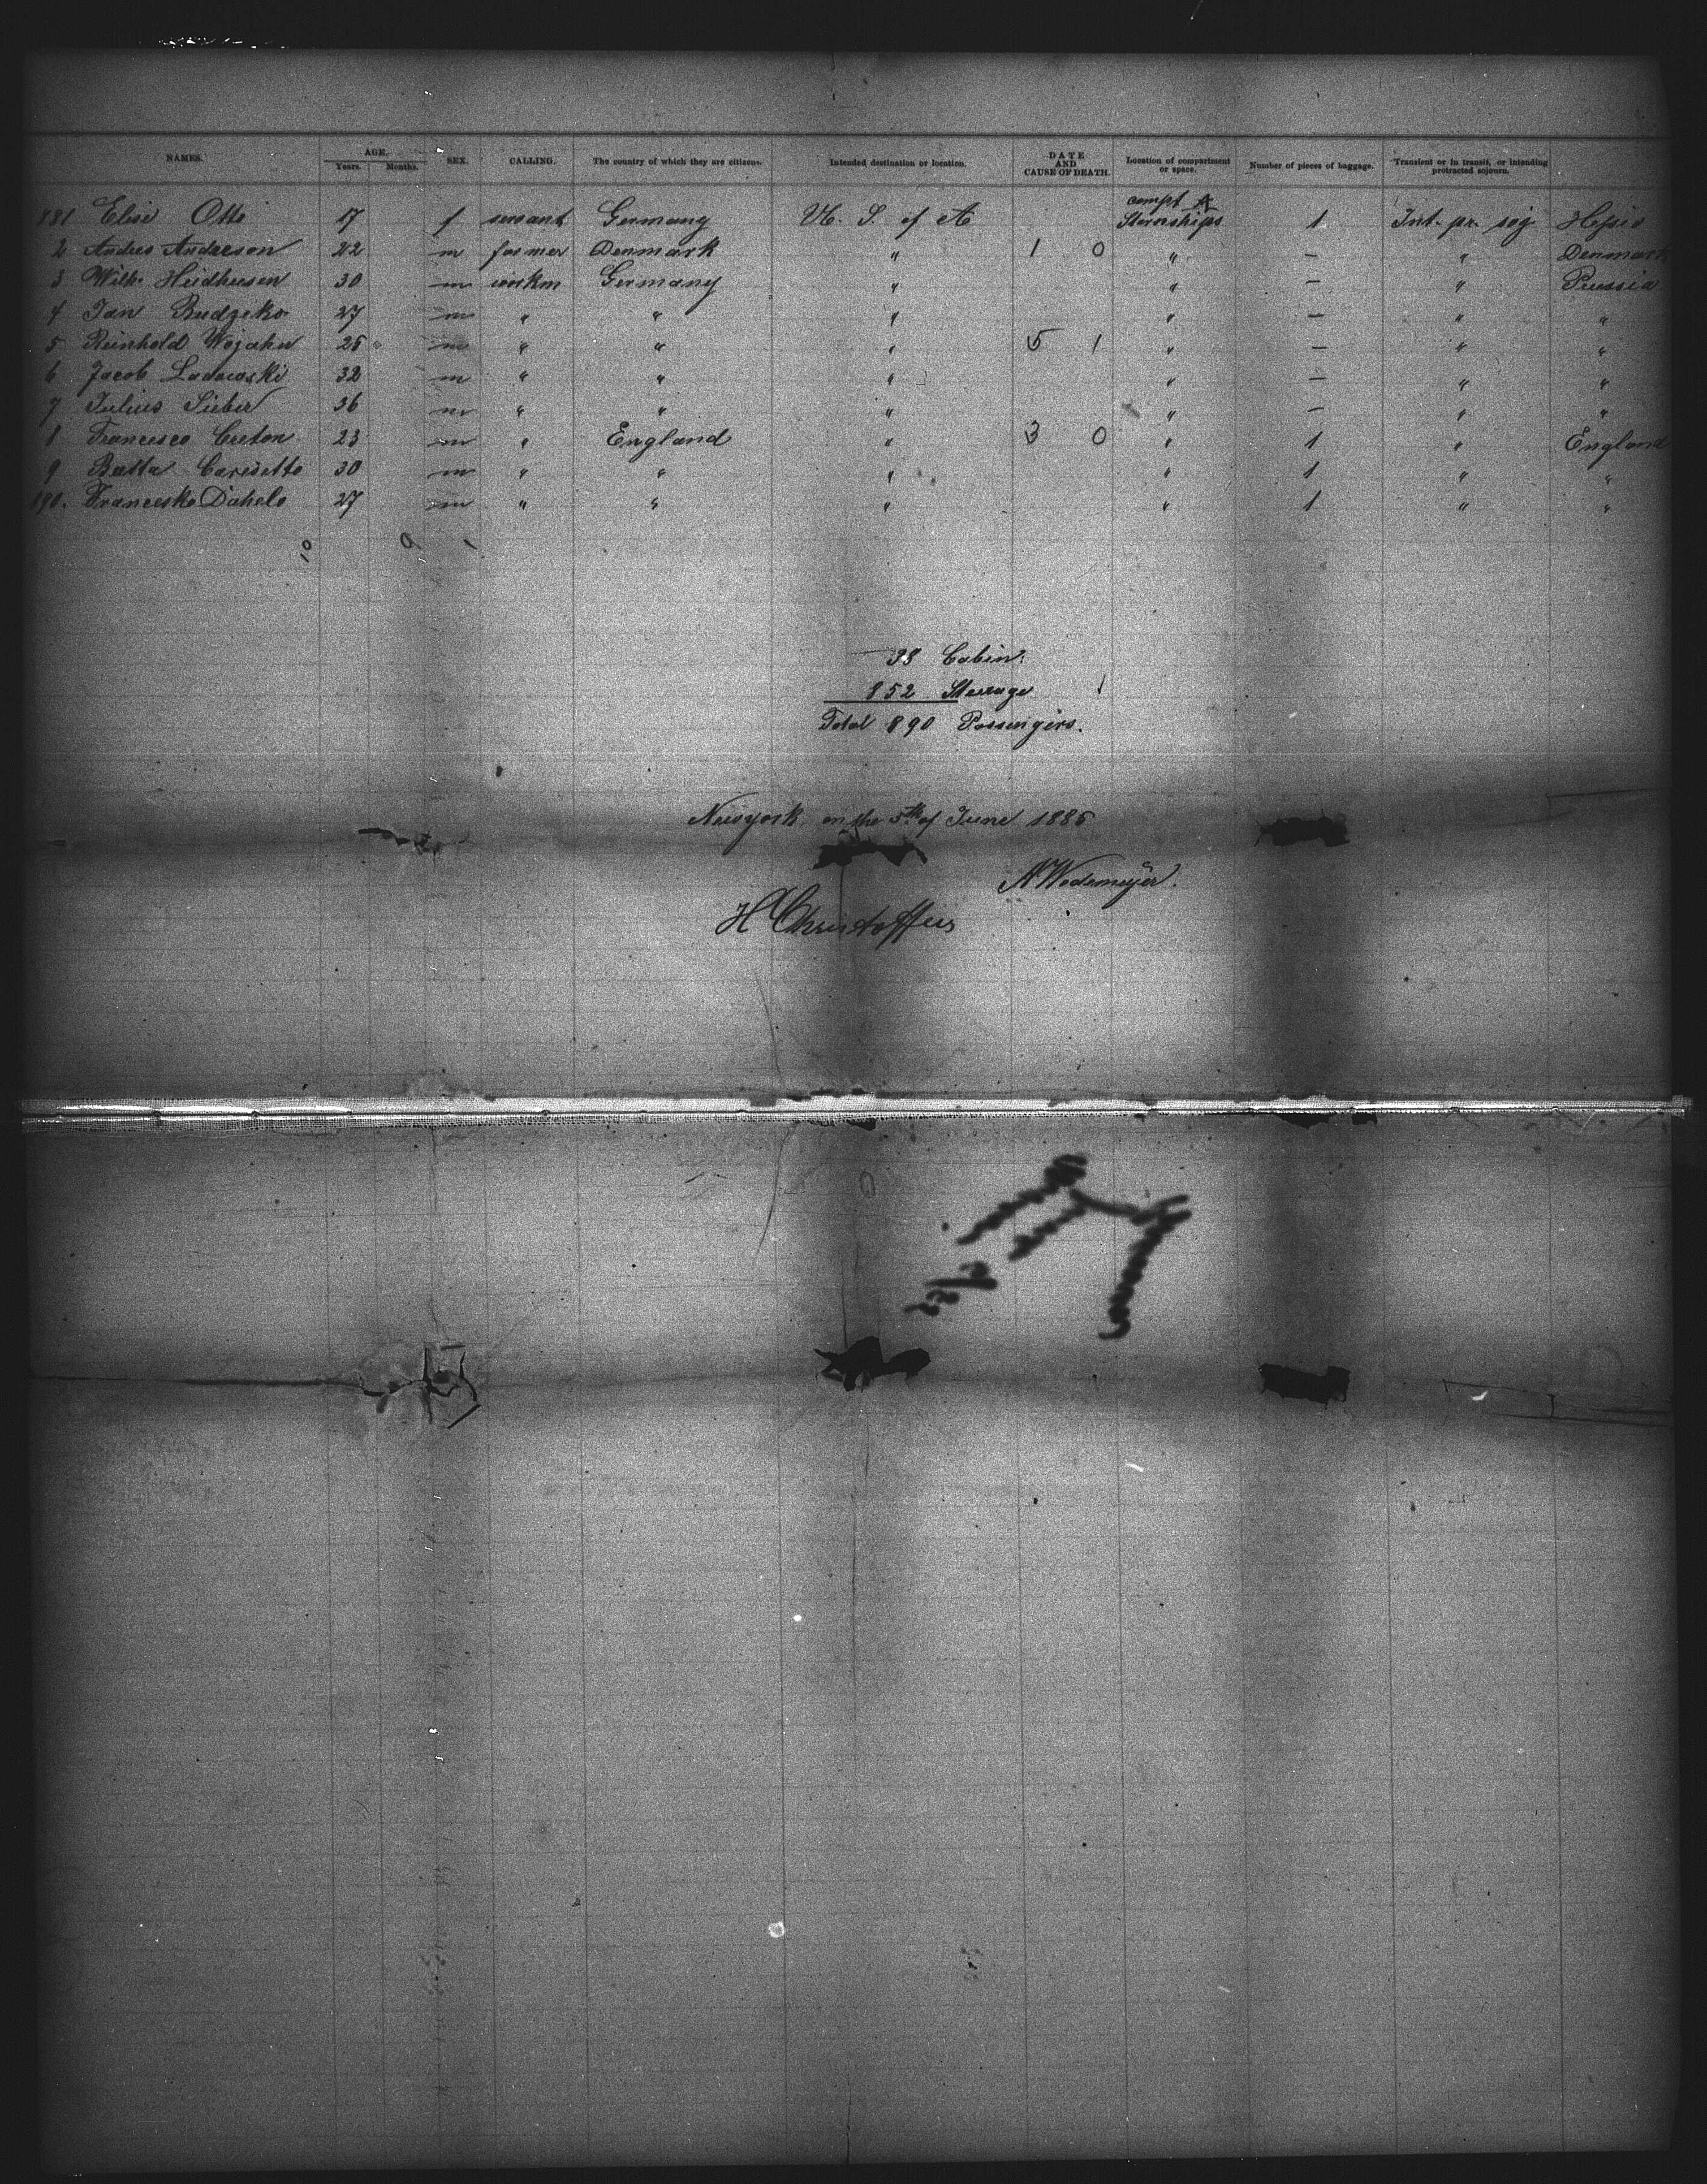 NAMES. AGE. Years. Months. SEX. CALLING. The country of which they are citizens. Intended destination or location. DATE AND CAUSE OF DEATH. Location of compartment or space. Number of pieces of baggage. Transient or in transit, or intending protracted sojourn.
881 Elise Otte 17 f servant Germany U. S. of A compt A Sternships 1 Int. pr. soj
2 Andres Anderson 22 m farmer Denmark " 1 0 " – " Denmark
3 Wilh. Heidhusen 30 m workm Germany " " – " Prussia
4 Jan Budzeko 27 m " " " " – " "
5 Reinhold Wojahn 25 m " " " 5 1 " – " "
6 Jacob Ladowski 32 m " " " " – " "
7 Julius Sieber 36 m " " " " – " "
8 Francesco Creton 23 m " England " 3 0 " 1 " England
9 Batta 30 m " " " " 1 " "
890. Francesko Dahelo 27 m " " " " 1 " "
10 9 1
38 Cabin.
852 Steerage
Total 890 Passengers.
Newyork on the 5th of June 1886
A Wedemeyer.
H Christoffers